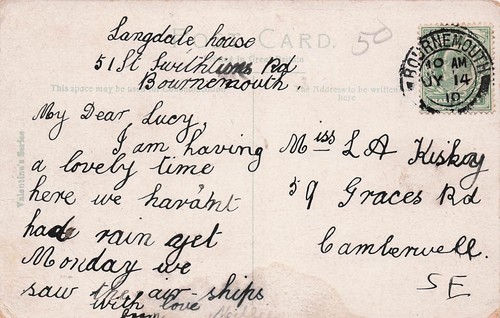 Langdale house
51 St Swithuns Rd
Bournemouth
POST CARD.
50
This space may be used
The Address to be written
here
Valentine's Series
BOURNEMOUTH
10 AM
JY 14
10
My Dear Lucy,
I am having
a lovely time
here we hav'nt
had rain yet
Monday we
saw the air-ships
with love
from
Miss L A
59 Graces Rd
Camberwell.
SE